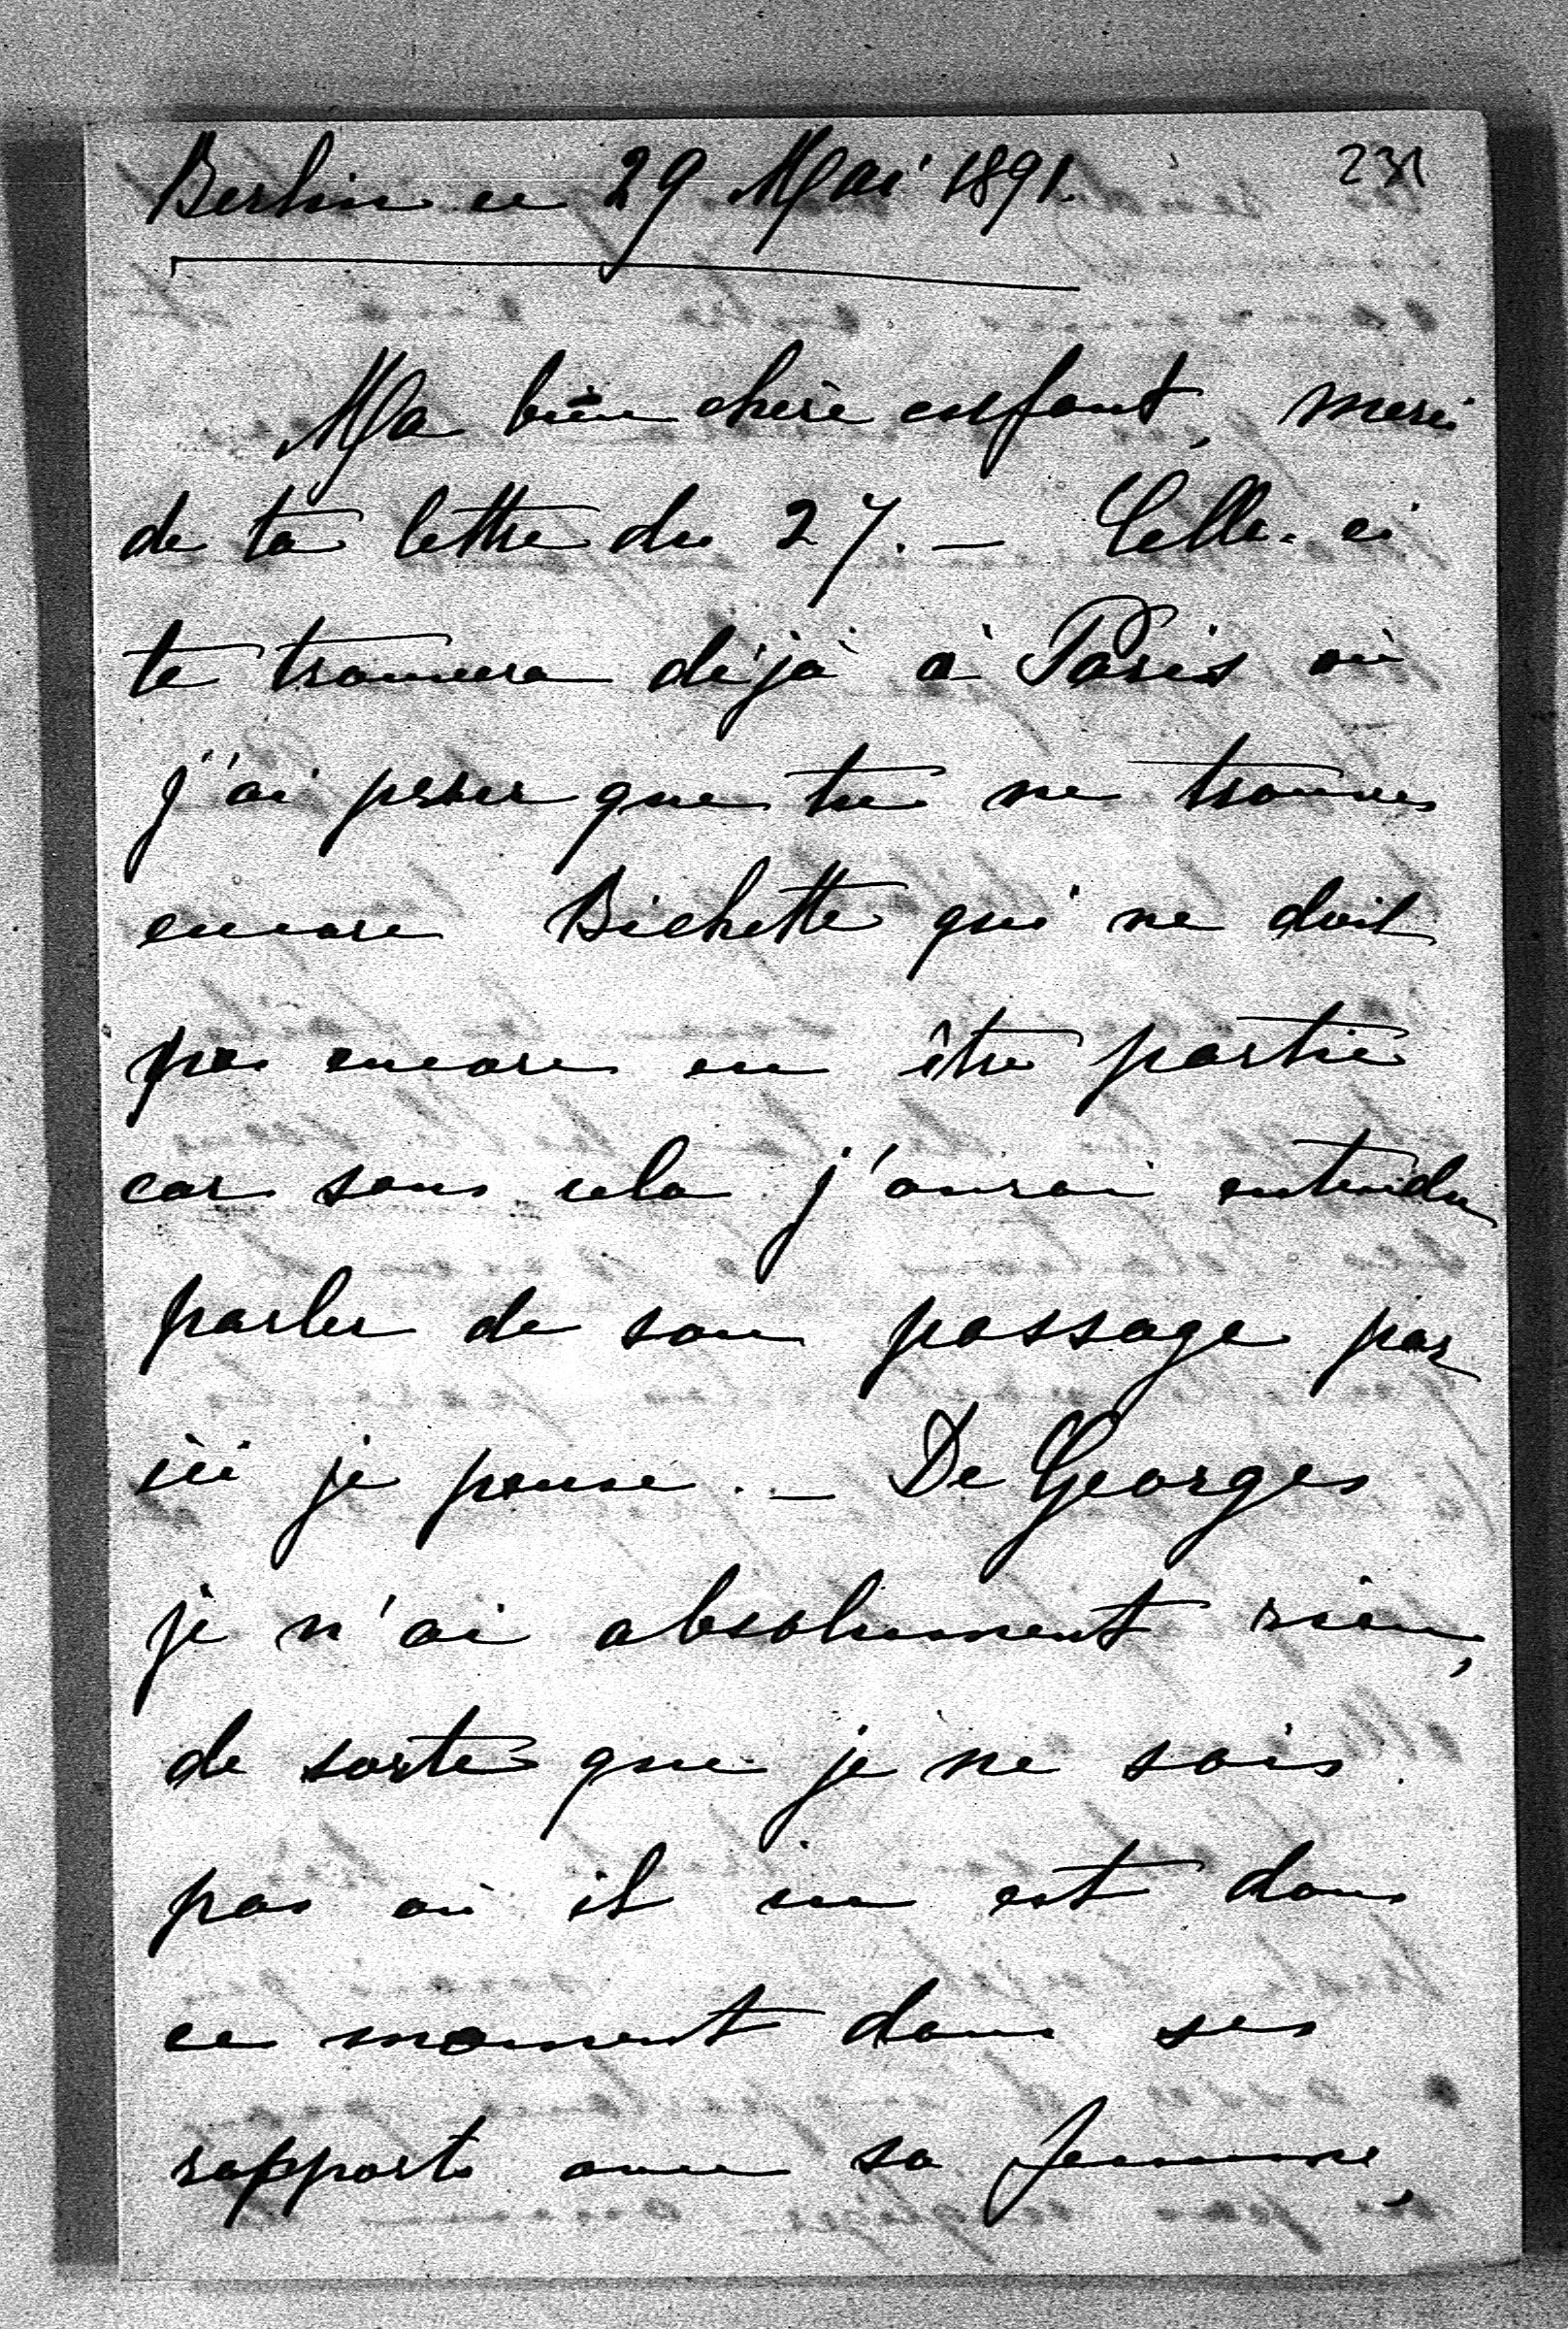 231
Berlin ce 29 Mai 1891.
Ma bien chère enfant, merci
de ta lettre du 27. — Celle-ci
te trouvera déjà à Paris où
j'ai peur que tu ne trouves
encore Bichette qui ne doit
pas encore en être partie
car sans cela j'aurai entendu
parler de son passage par
ici je pense. — De Georges
je n'ai absolument rien,
de sorte que je ne sais
pas où il en est dans
ce moment dans ses
rapports avec sa femme,